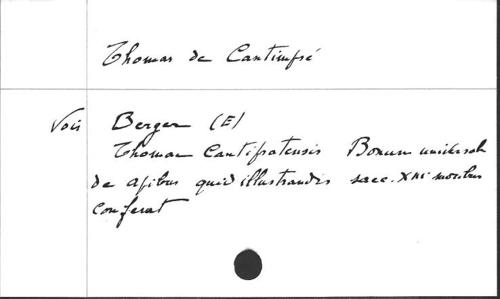 Thomas de Cantimpré
Voir Berger (E)
Thomae Cantipratensis Bonum universale
de apibus quid illustrandis saec. XIII moribus
conferat